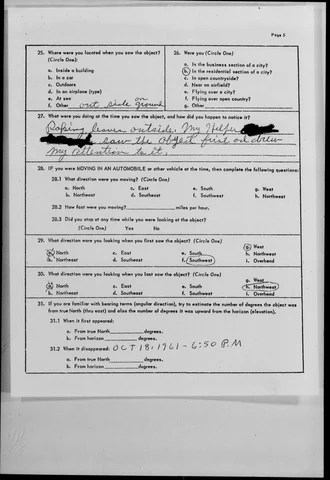 Page 5
25. Where were you located when you saw the object?
(Circle One)
a. Inside a building
b. In a car
c. Outdoors
d. In an airplane (type)
e. At sea
f. Other out side on ground
26. Were you (Circle One)
a. In the business section of a city?
b. In the residential section of a city?
c. In open countryside?
d. Near an airfield?
e. Flying over a city?
f. Flying over open country?
g. Other
27. What were you doing at the time you saw the object, and how did you happen to notice it?
Raking leaves outside. My Helper
saw the object first and drew
My Attention to it.
28. IF you were MOVING IN AN AUTOMOBILE or other vehicle at the time, then complete the following questions:
28.1 What direction were you moving? (Circle One)
a. North c. East e. South g. West
b. Northeast d. Southeast f. Southwest h. Northwest
28.2 How fast were you moving? miles per hour.
28.3 Did you stop at any time while you were looking at the object?
(Circle One) Yes No
29. What direction were you looking when you first saw the object? (Circle One)
a. North c. East e. South g. West
b. Northeast d. Southeast f. Southwest h. Northwest
i. Overhead
30. What direction were you looking when you last saw the object? (Circle One)
a. North c. East e. South g. West
b. Northeast d. Southeast f. Southwest h. Northwest
i. Overhead
31. If you are familiar with bearing terms (angular direction), try to estimate the number of degrees the object was
from true North (thru east) and also the number of degrees it was upward from the horizon (elevation).
31.1 When it first appeared:
a. From true North degrees.
b. From horizon degrees.
31.2 When it disappeared: OCT 18, 1961 - 6:50 P.M
a. From true North degrees.
b. From horizon degrees.